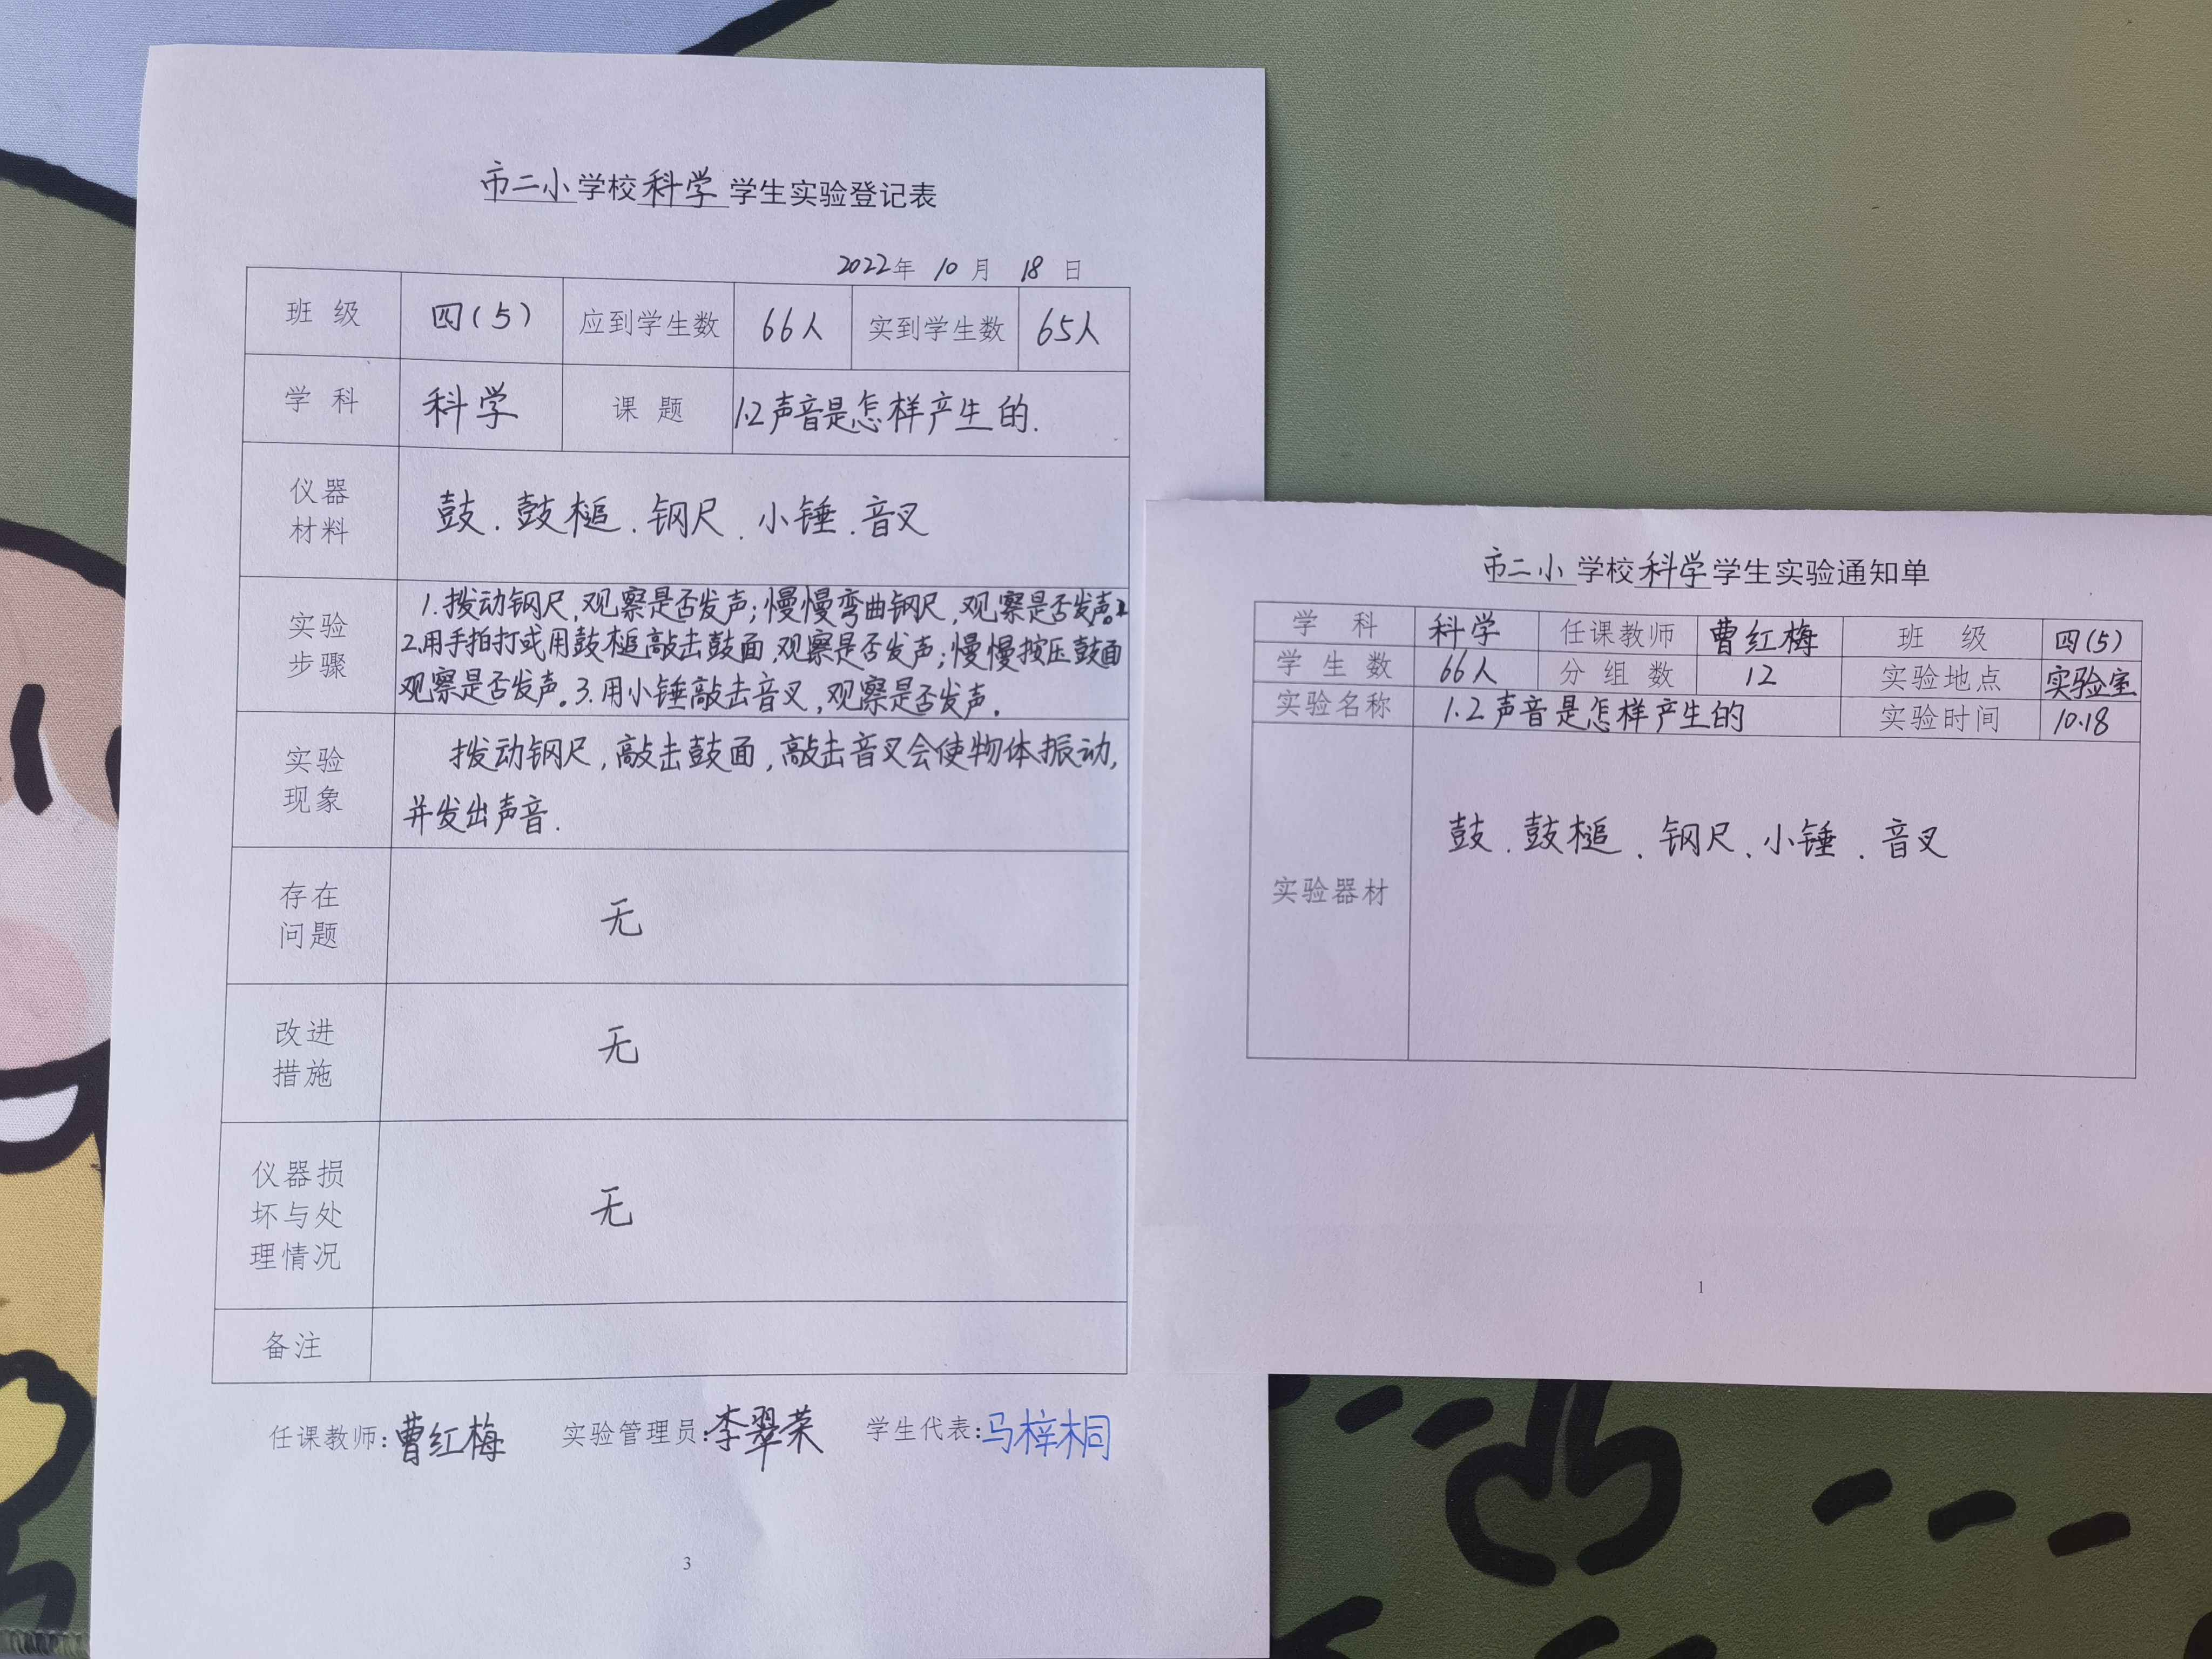 市二小学校科学学生实验登记表
2022年 10月 18日
班级 四(5) 应到学生数 66人 实到学生数 65人
学科 科学 课题 1.2声音是怎样产生的.
仪器
材料
鼓.鼓槌.钢尺.小锤.音叉
实验
步骤
1.拨动钢尺,观察是否发声;慢慢弯曲钢尺,观察是否发声。
2.用手拍打或用鼓槌敲击鼓面,观察是否发声;慢慢按压鼓面
观察是否发声。3.用小锤敲击音叉,观察是否发声.
实验
现象
拨动钢尺,敲击鼓面,敲击音叉会使物体振动,
并发出声音.
存在
问题
无
改进
措施
无
仪器损
坏与处
理情况
无
备注
任课教师:曹红梅 实验管理员:李翠荣 学生代表:马梓桐
3
市二小学校科学学生实验通知单
学科 科学 任课教师 曹红梅 班级 四(5)
学生数 66人 分组数 12 实验地点 实验室
实验名称 1.2声音是怎样产生的 实验时间 10.18
实验器材
鼓.鼓槌.钢尺、小锤.音叉
1